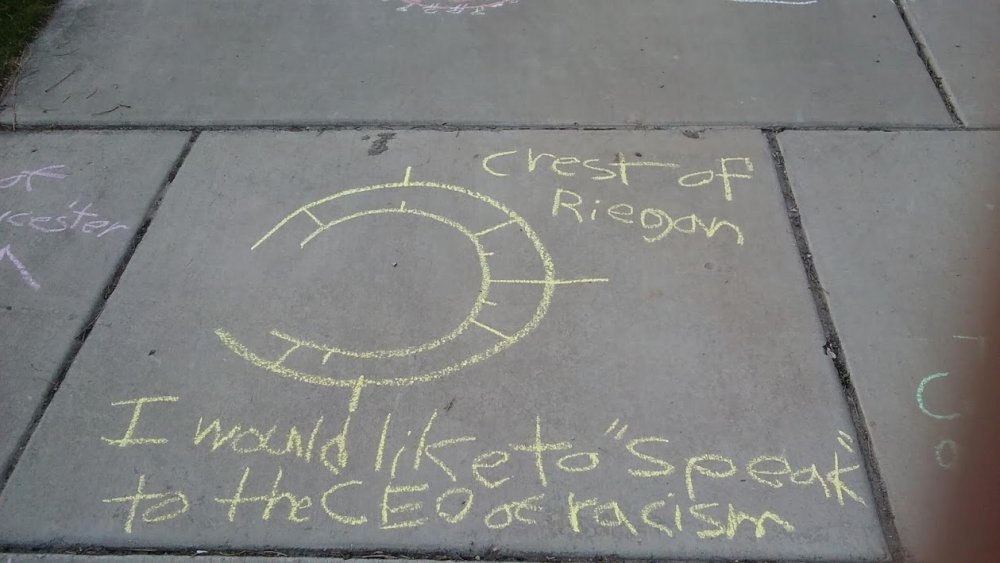 Crest of
Riegan
of
I would like to "speak"
to the CEO of racism